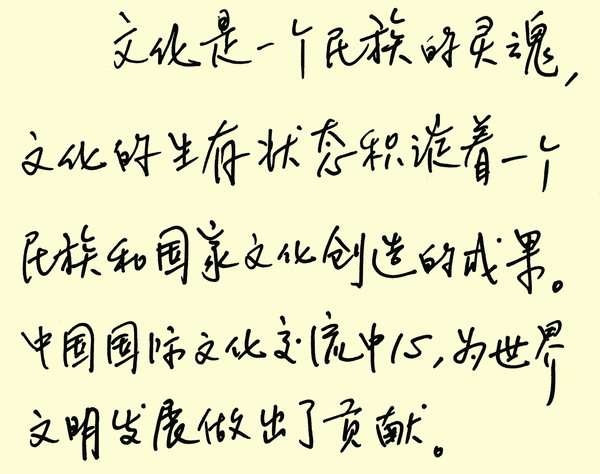 文化是一个民族的灵魂,
文化的生存状态积淀着一个
民族和国家文化创造的成果。
中国国际文化交流中心,为世界
文明发展做出了贡献。